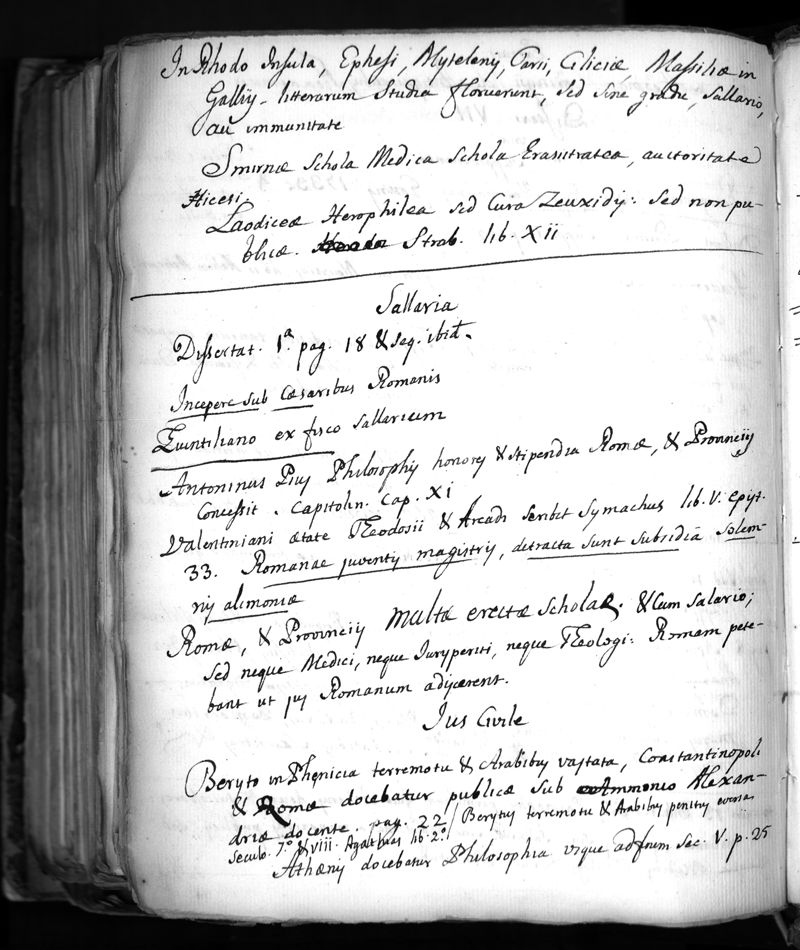 In Rhodo Insula, Ephesi, Myteleny, Tarsi, Ciliciæ Massiliæ in
Gallÿ - litterarum Studia floruerunt, sed sine gradu, sallario,
au immunitate
Smirnæ Schola Medica Schola Erasitratea, auctoritate
Hicesi
Laodiceæ Herophilea sed Cura Zeuxidÿ: sed non pu-
blicæ. Strab. lib. XII
Sallaria
Dissertat. 1.ª pag. 18 & seq. ibid.
Incepere sub Cæsaribus Romanis
Quintiliano ex fisco sallarium
Antoninus Pius Philosophÿ honores & stipendia Romæ, & Provinciÿ
Concessit. Capitolin. Cap. XI
Valentiniani ætate Theodosii & Arcadi scribit Symachus lib. V. epist.
33. Romanae juventÿ magistrÿ, detracta sunt subsidia solem-
nÿ alimoniæ
Romæ, & Provinciÿ multæ erectæ scholae. & Cum salario;
sed neque Medici, neque Jurisperiti, neque Theologi: Romam pete-
bant ut jus Romanum adjicerent.
Jus Civile
Beryto in Phęnicia terremotu & Arabibus vastata, Constantinopoli
& Romæ docebatur publicæ sub Ammonio Alexan-
driæ docente. pag. 22 / Berytus terremotu & Arabibus penitus eversa
seculo. 7.º & VIII. Agathias lib. 2.º
Athænÿ docebatur Philosophia usque ad finem Sec. V. p. 25